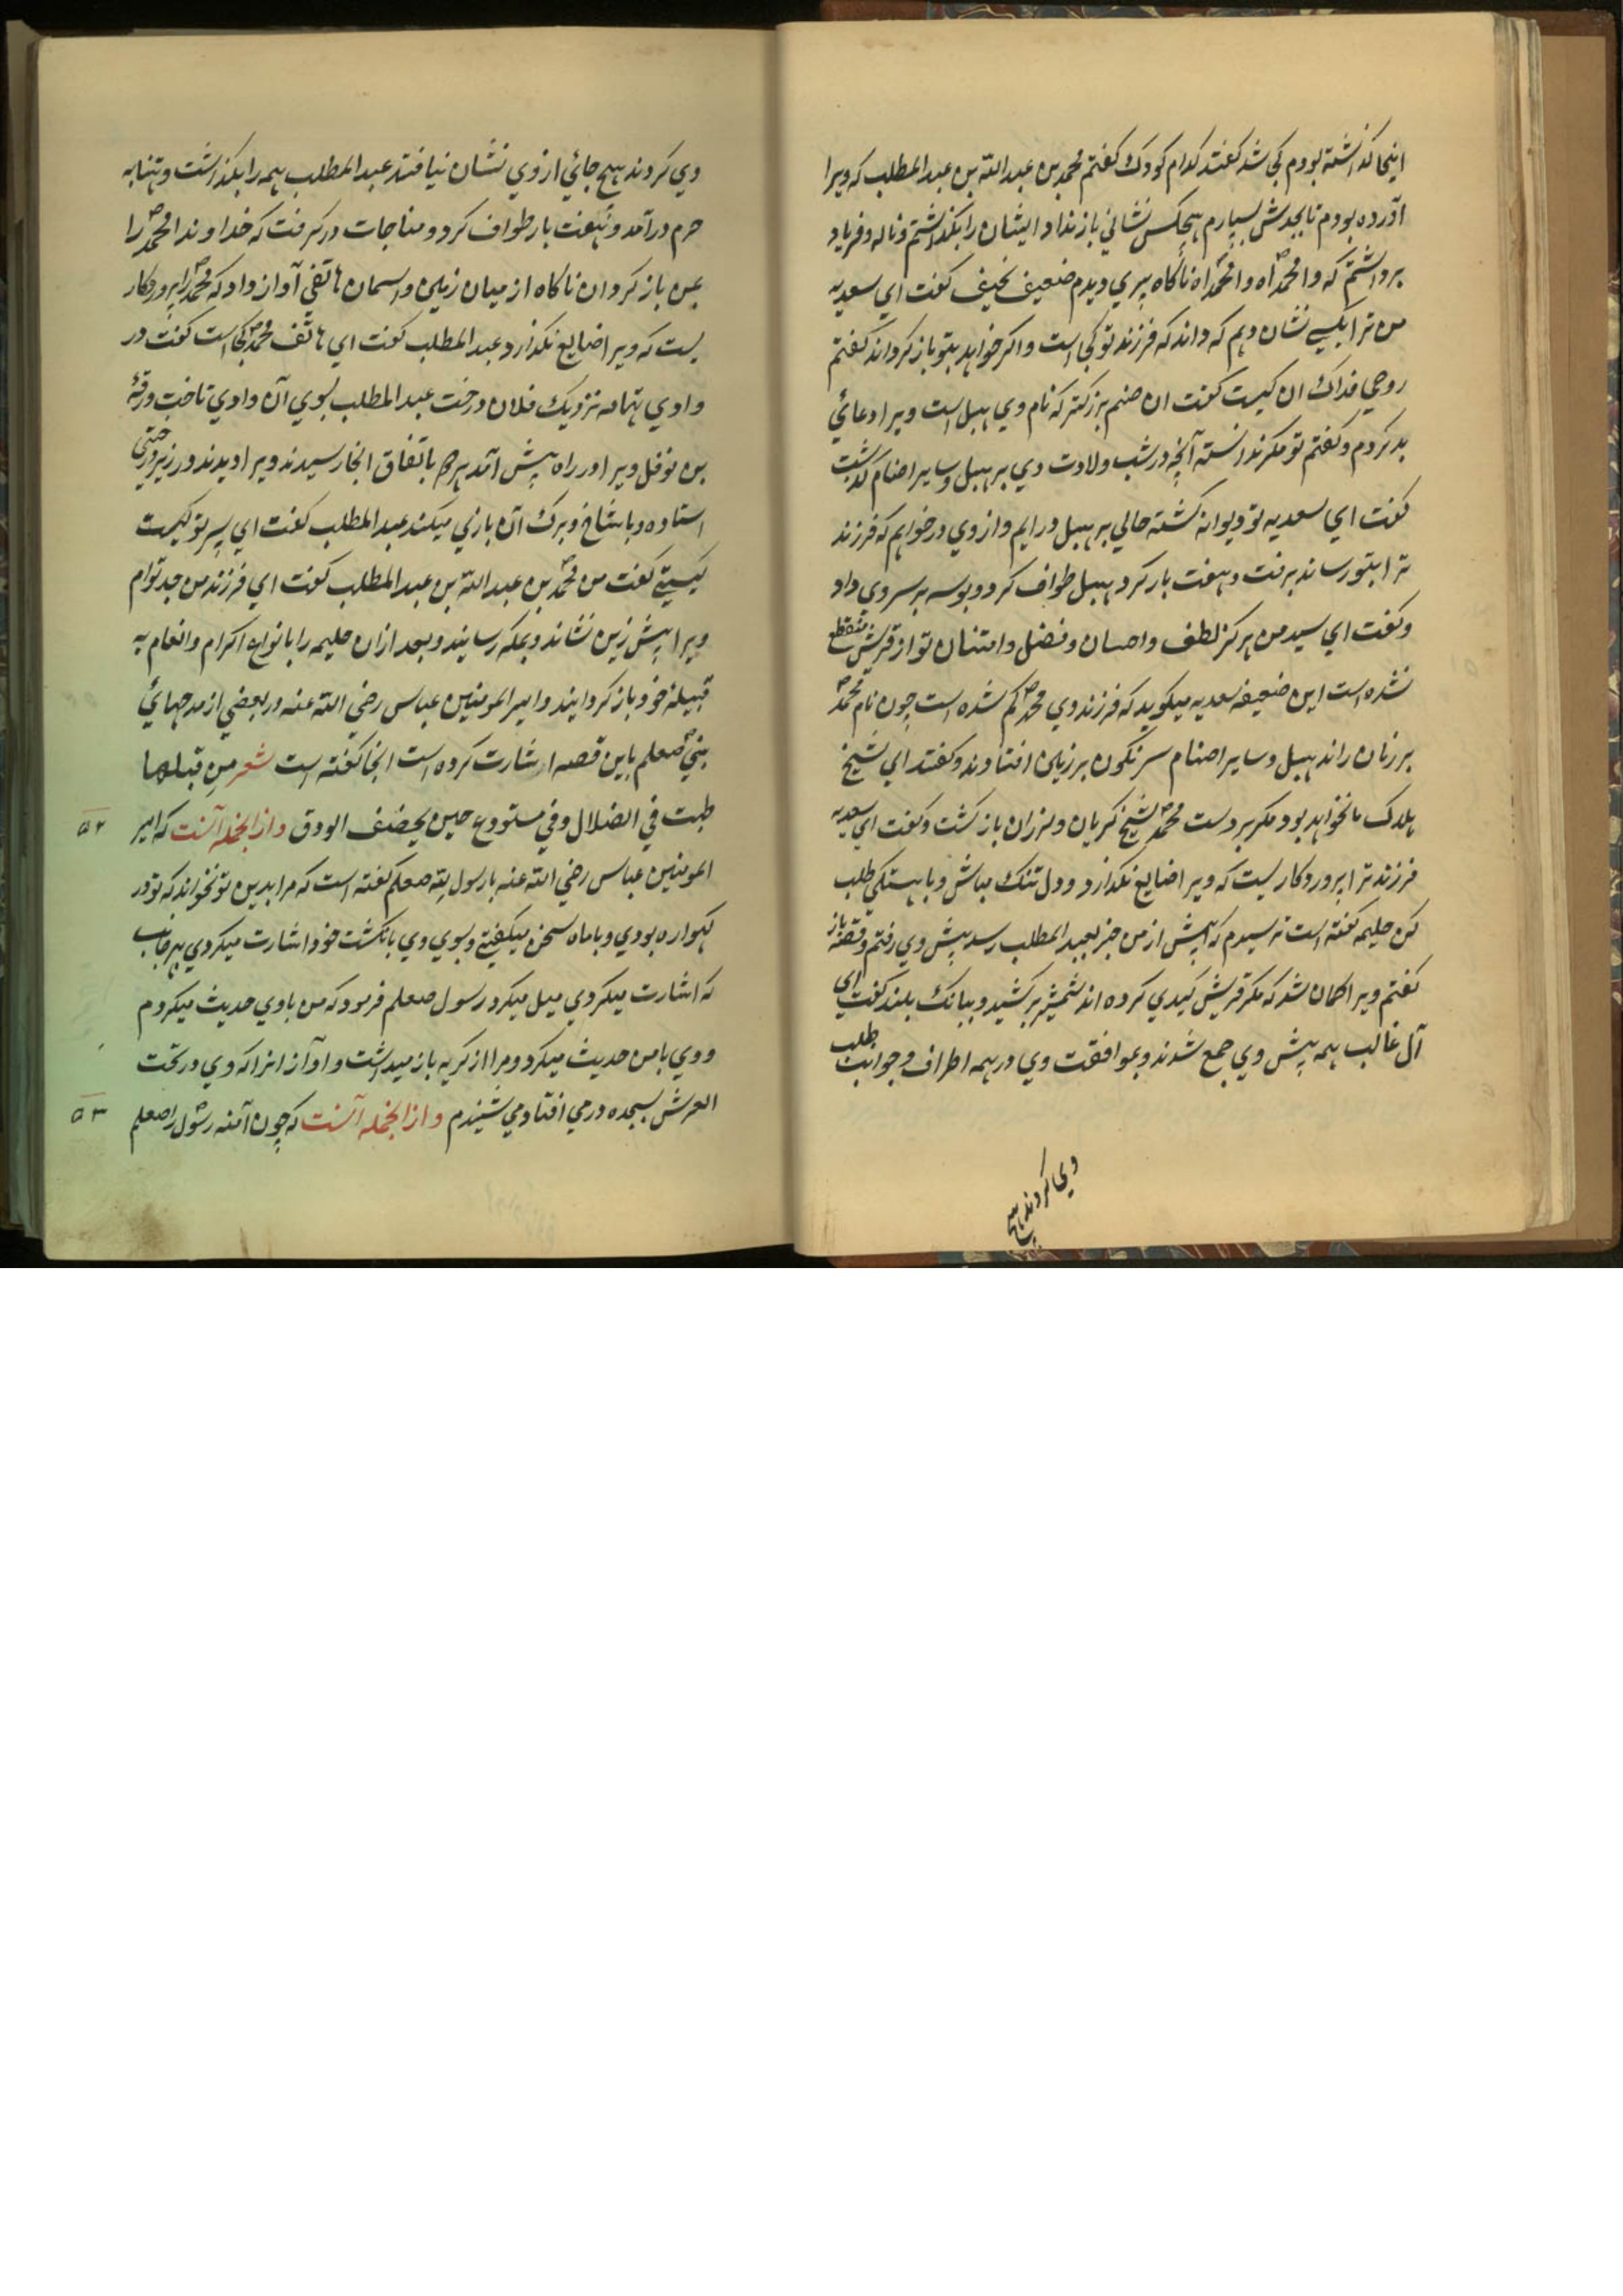 اینجا گذاشته بودم کجا شد گفتند کدام کودک گفتم محمد بن عبدالله بن عبدالمطلب که ویرا
آورده بودم تا بجدش بسپارم هیچکس نشانی باز نداد ایشان را بگذاشتم و ناله و فریاد
برداشتم که وا محمداه وا محمداه ناکاه پیری دیدم ضعیف نحیف گفت ای سعدیه
من ترا بکسی نشان دهم که داند که فرزند تو کجا است و اکر خواهد بتو باز کرداند گفتم
روحی فداک ان کیست گفت ان صنم بزرکتر که نام وی هبل است ویرا دعائی
بد کردم و گفتم تو مکر ندانسته آنچه در شب ولادت وی بر هبل و سایر اصنام گذشت
گفت ای سعدیه تو دیوانه کشته حالی بر هبل در ایم و از وی درخواهم که فرزند
ترا بتو رساند برفت و هفت بار کرد هبل طواف کرد و بوسه بر سر وی داد
و گفت ای سید من هرکز لطف و احسان و فضل و امتنان تو از قریش منقطع
نشده است این ضعیفه سعدیه میکوید که فرزند وی محمد کم شده است چون نام محمد
بر زبان راند هبل و سایر اصنام سرنکون بر زمین افتادند و گفتند ای شیخ
هلاک ما نخواهد بود مکر بر دست محمد شیخ کریان و لرزان باز کشت و گفت ای سعدیه
فرزند ترا پروردکاریست که ویرا ضایع نکذارد و دل تنک مباش و باهستکی طلب
کن حلیمه گفته است ترسیدم که پیش از من خبر بعبدالمطلب رسد پیش وی رفتم و قصه باز
گفتم ویرا کمان شد که مکر قریش کیدی کرده اند شمشیر برکشید و ببانک بلند گفت ای
آل غالب همه پیش وی جمع شدند و بموافقت وی در همه اطراف و جوانب طلب
وی کردند هیچ
وی کردند هیچ جائی از وی نشان نیافتند عبدالمطلب همه را بکذاشت و تنها به
حرم درآمد و هفت بار طواف کرد و مناجات در کرفت که خداوندا محمد را
بمن باز کردان ناکاه از میان زمین و اسمان هاتفی آواز داد که محمد را پروردکار
یست که ویرا ضایع نکذارد عبدالمطلب گفت ای هاتف محمد کجا است گفت در
وادی تهامه نزدیک فلان درخت عبدالمطلب بسوی آن وادی تاخت ورقه
بن نوفل ویرا در راه پیش آمد هر دو باتفاق انجا رسیدند ویرا دیدند در زیر درختی
استاده و با شاخ و برک آن بازی میکند عبدالمطلب گفت ای پسر تو کیست
کیستی گفت من محمد بن عبدالله بن عبدالمطلب گفت ای فرزند من جد توام
ویرا پیش زین نشاند و بمکه رسانید و بعد از ان حلیمه را بانواع اکرام و انعام به
قبیله خود باز کردانید و امیر المومنین عباس رضی الله عنه در بعضی از مدحهائی
نبی صعلم باین قصه اشارت کرده است انجا گفته است شعر من قبلها
طبت فی الضلال و فی مستودع حین یخصف الورق و از انجمله آنست که امیر ۵۲
المومنین عباس رضی الله عنه با رسول لله صعلم گفته است که مرا بدین تو نخواند که تو در
کهواره بودی و با ماه سخن میگفتی و بسوی وی بانکشت خود اشارت میکردی بهر جانب
که اشارت میکردی میل میکرد رسول صعلم فرمود که من با وی حدیث میکردم
و وی با من حدیث میکرد و مرا از کریه باز میداشت و آواز انرا که وی در تحت
العرش بسجده در می افتاد می شنیدم و از انجمله آنست که چون آمنه رسول را صعلم ۵۳